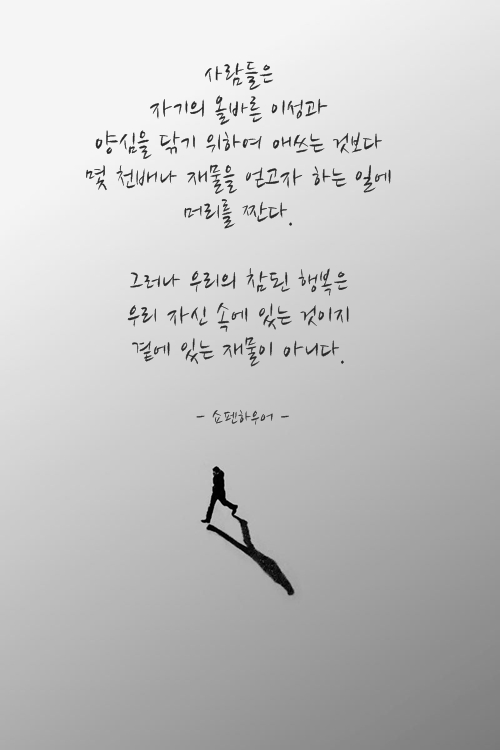 사람들은
자기의 올바른 이성과
양심을 닦기 위하여 애쓰는 것보다
몇 천배나 재물을 얻고자 하는 일에
머리를 짠다.
그러나 우리의 참된 행복은
우리 자신 속에 있는 것이지
곁에 있는 재물이 아니다.
- 쇼펜하우어 -